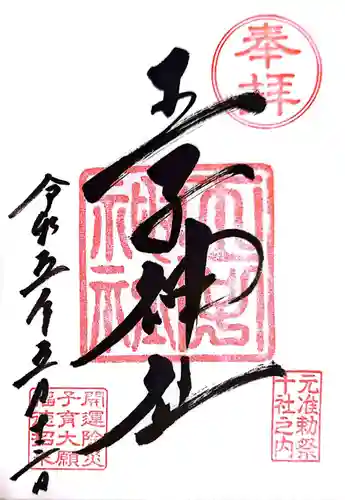 奉拝
王子神社
元准勅祭
十社之内
令和五年五月十二日
開運除災
子育大願
福徳招来